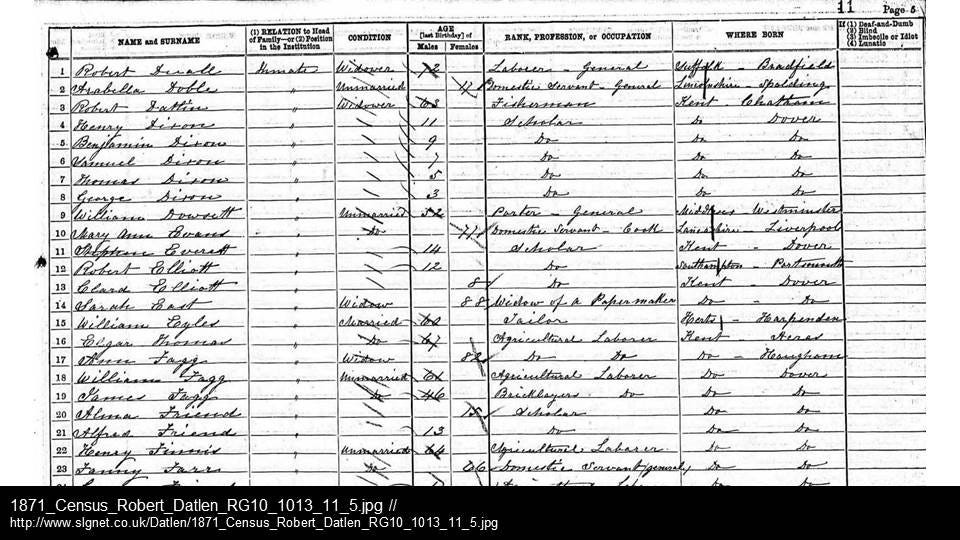 11 Page 5
NAME and SURNAME (1) RELATION to Head of Family—or (2) Position in the Institution CONDITION AGE [last Birthday] of Males Females RANK, PROFESSION, or OCCUPATION WHERE BORN If (1) Deaf-and-Dumb (2) Blind (3) Imbecile or Idiot (4) Lunatic
1 Robert Duvall Inmate Widower 72 Laborer - General Suffolk - Bradfield
2 Arabella Doble " Unmarried Domestic Servant - General Lincolnshire - Spalding
3 Robert Datlin " Widower 63 Fisherman Kent Chatham
4 Henry Dixon " 11 Scholar Do Dover
5 Benjamin Dixon " 9 Do Do Do
6 Samuel Dixon " 7 Do Do Do
7 Thomas Dixon " 5 Do Do Do
8 George Dixon " 3 Do Do Do
9 William Dowsett " Unmarried 52 Porter - General Middlesex Westminster
10 Mary Ann Evans " Do Domestic Servant - Cook Lancashire - Liverpool
11 Stephen Everett " 14 Scholar Kent - Dover
12 Robert Elliott " 12 Do Southampton - Portsmouth
13 Clara Elliott " 8 Do Kent - Dover
14 Sarah East " Widow 88 Widow of a Papermaker Do - Do
15 William Eyles " Married Tailor Herts - Harpenden
16 Edgar Thomas " Do 67 Agricultural Laborer Kent -
17 Ann Fagg " Widow 82 Do Do Do - Hougham
18 William Fagg " Unmarried 61 Agricultural Laborer Do Dover
19 James Fagg " Do 46 Bricklayers Do Do Do
20 Alma Friend " 15 Scholar Do Do
21 Alfred Friend " 13 Do Do Do
22 Henry Finnis " Unmarried 64 Agricultural Laborer Do Do
23 Fanny Farr " Do 66 Domestic Servant (general) Do Do
1871_Census_Robert_Datlen_RG10_1013_11_5.jpg //
http://www.slgnet.co.uk/Datlen/1871_Census_Robert_Datlen_RG10_1013_11_5.jpg